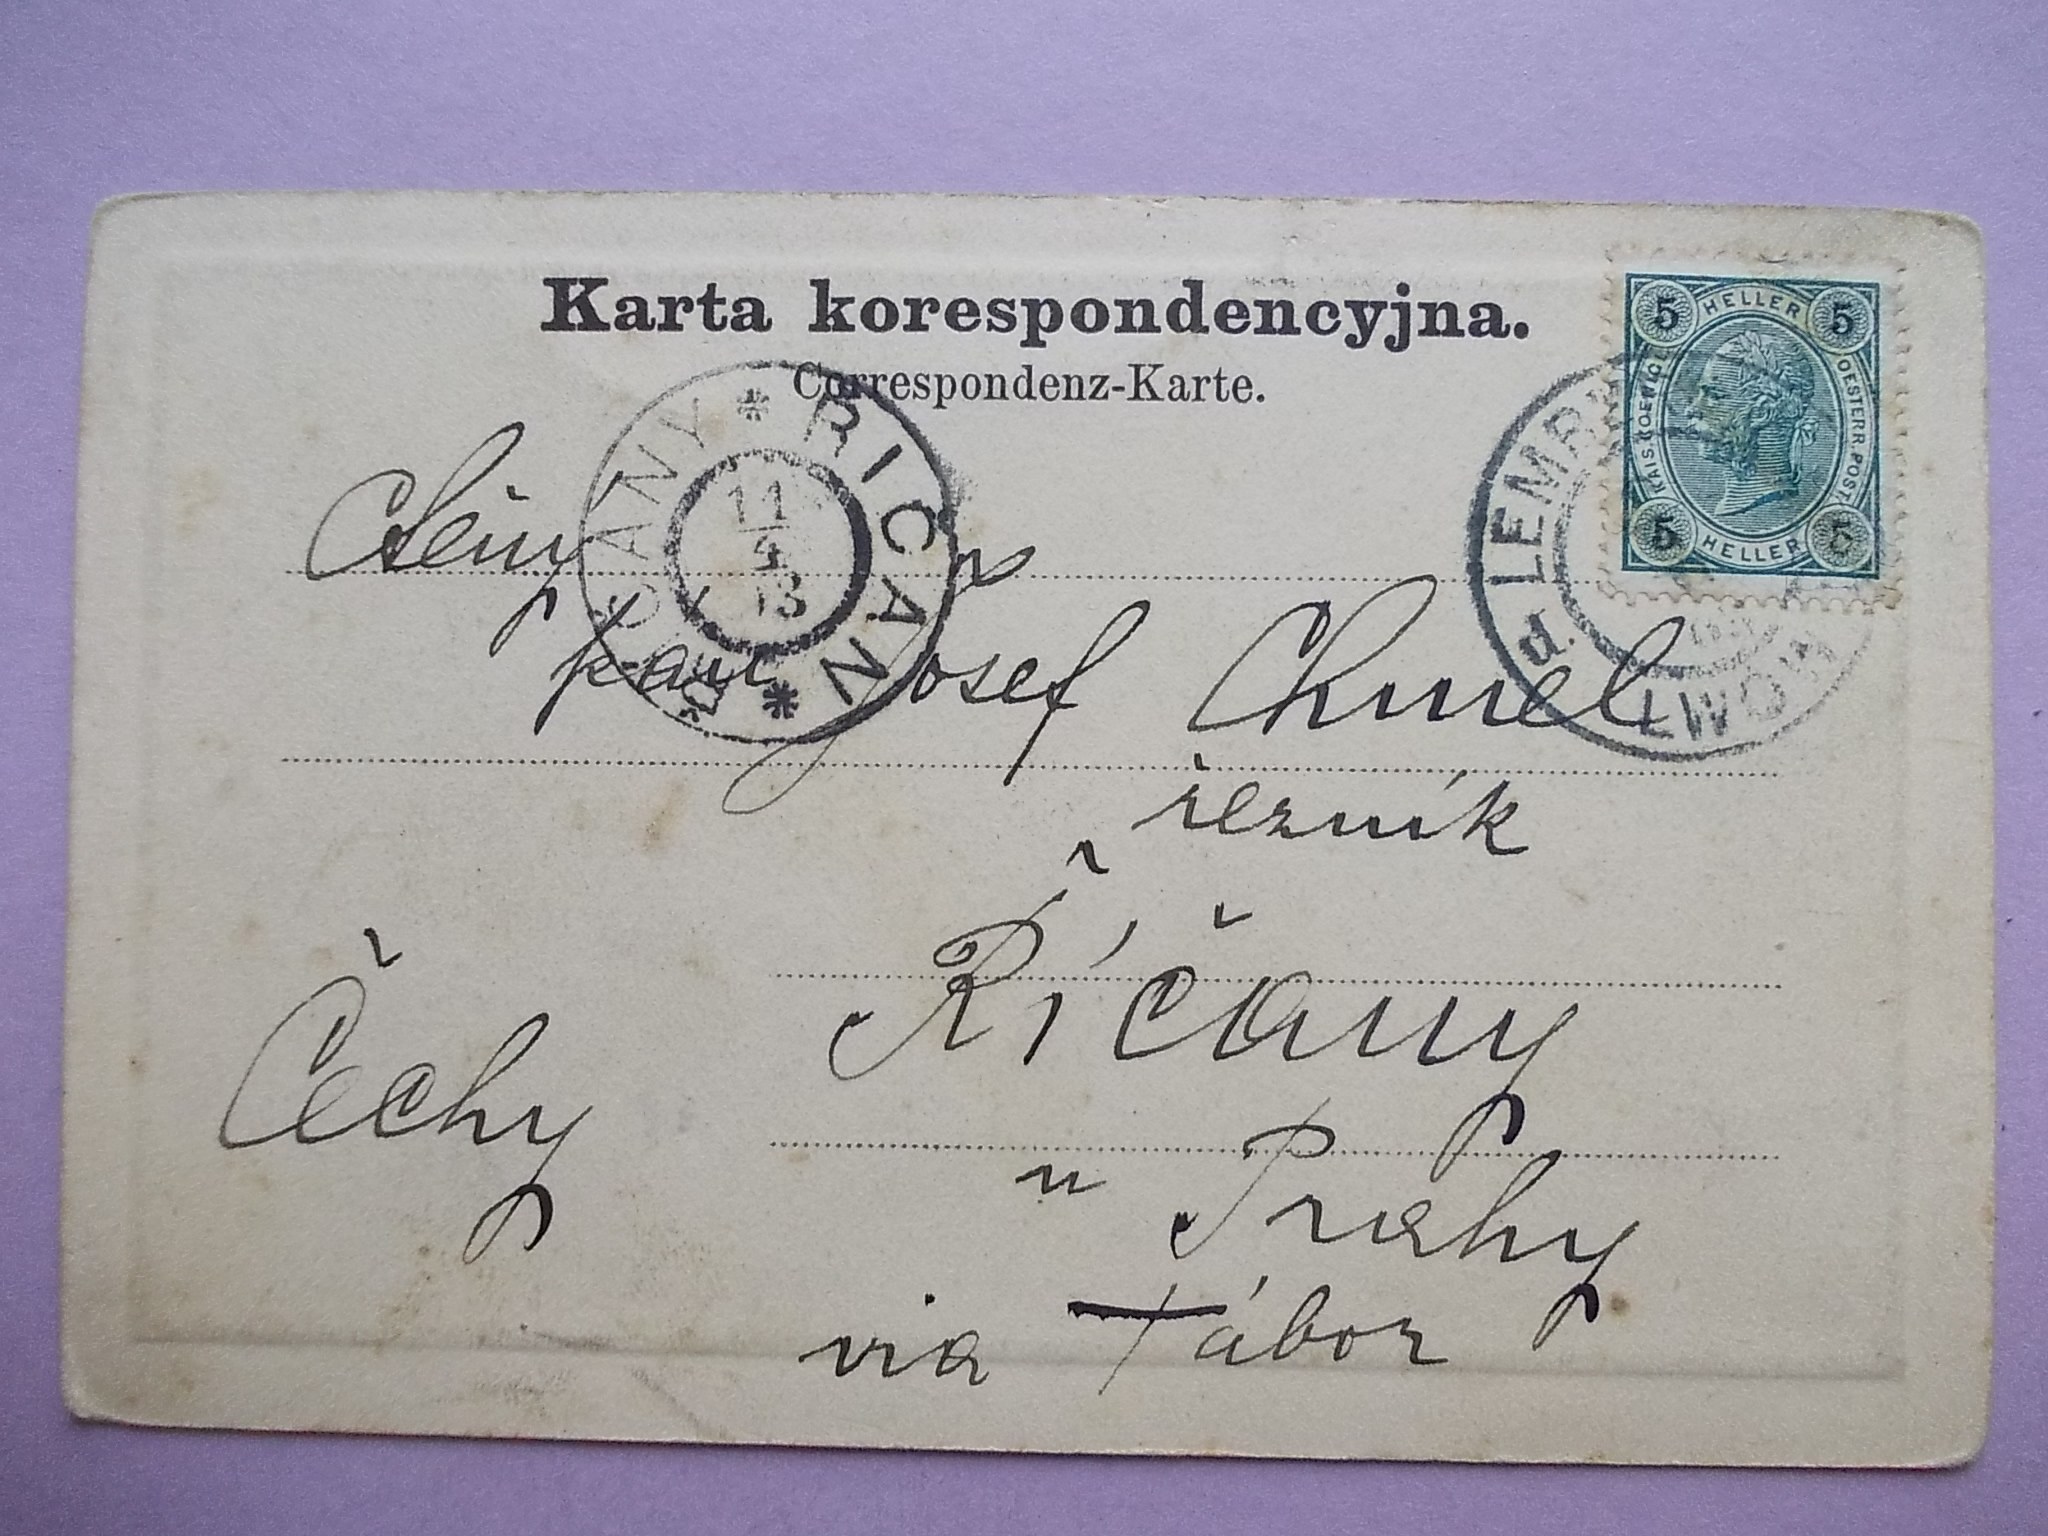 Karta korespondencyjna.
Correspondenz-Karte.
5 HELLER 5
KAIS. KOENIGL. OESTERR. POST.
5 HELLER 5
LEMB
d. LWÓW
ŘIČAN * ŘÍČANY *
11
4
03
Ctěný
pan Josef Chmel
řezník
Říčany
Čechy
u Prahy
via Tábor